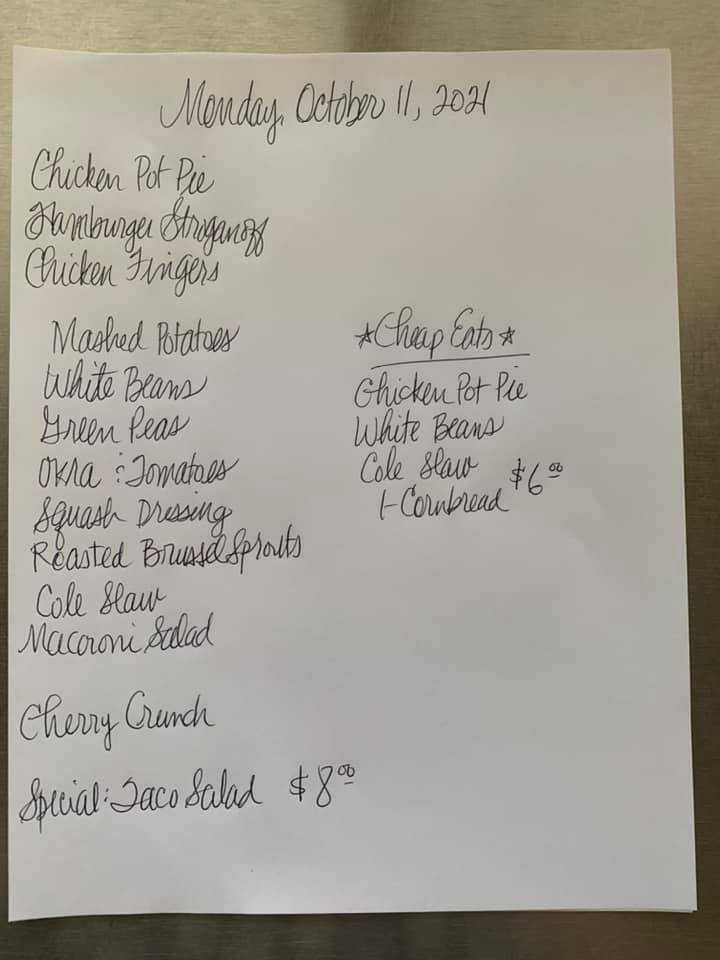 Monday, October 11, 2021
Chicken Pot Pie
Hamburger Stroganoff
Chicken Fingers
Mashed Potatoes
White Beans
Green Peas
Okra & Tomatoes
Squash Dressing
Roasted Brussel Sprouts
Cole Slaw
Macoroni Salad
Cherry Crunch
Special: Taco Salad $8.00
*Cheap Eats*
Chicken Pot Pie
White Beans
Cole Slaw $6.00
1-Cornbread